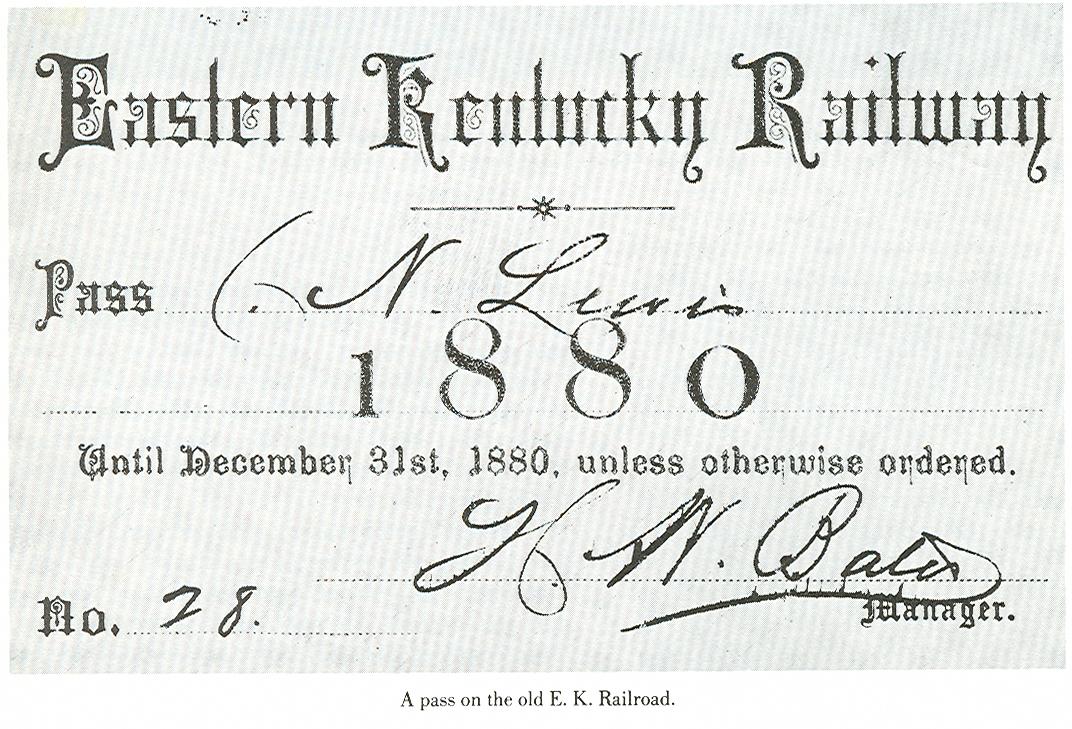 Eastern Kentucky Railway
Pass C. N. Lewis
1880
Until December 31st, 1880, unless otherwise ordered.
H. W. Bates
Manager.
No. 28.
A pass on the old E. K. Railroad.